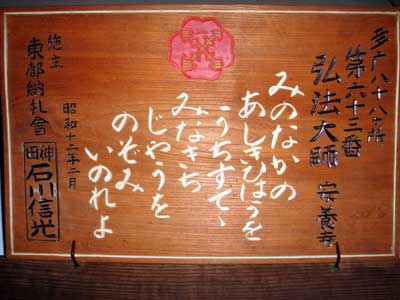 多广八十八ヶ所
第六十三番
弘法大師 安養寺
みのなかの
あしきひほうを
うちすてゝ
みなきち
じやうを
のぞみ
いのれよ
昭和十二年二月
施主
東都納札會
神田
石川信光